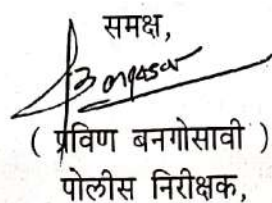 समक्ष,
( प्रविण बनगोसावी )
पोलीस निरीक्षक,